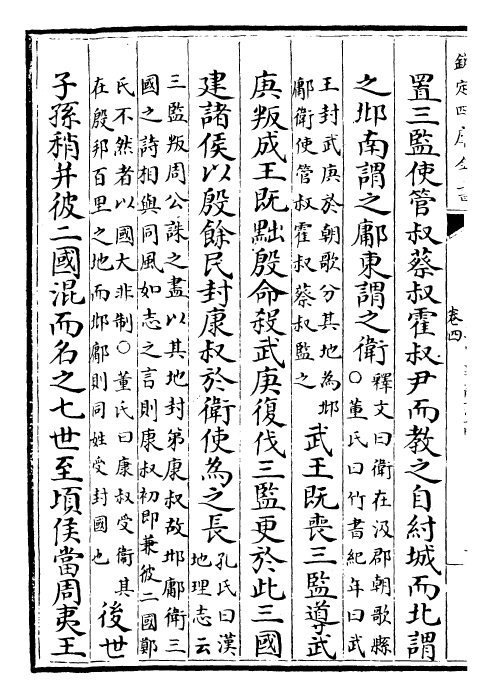 欽定四庫全書
卷四
置三監使管叔蔡叔霍叔尹而教之自紂城而北謂
之邶南謂之鄘東謂之衛釋文曰衛在汲郡朝歌縣○董氏曰竹書紀年曰武
王封武庚於朝歌分其地為邶鄘衛使管叔霍叔蔡叔監之武王既喪三監導武
庚叛成王既黜殷命殺武庚復伐三監更於此三國
建諸侯以殷餘民封康叔於衛使為之長孔氏曰漢地理志云
三監叛周公誅之盡以其地封弟康叔故邶鄘衛三國之詩相與同風如志之言則康叔初即兼彼二國鄭
氏不然者以國大非制○董氏曰康叔受衛其在殷邦百里之地而邶鄘則同姓受封國也後世
子孫稍并彼二國混而名之七世至頃侯當周夷王